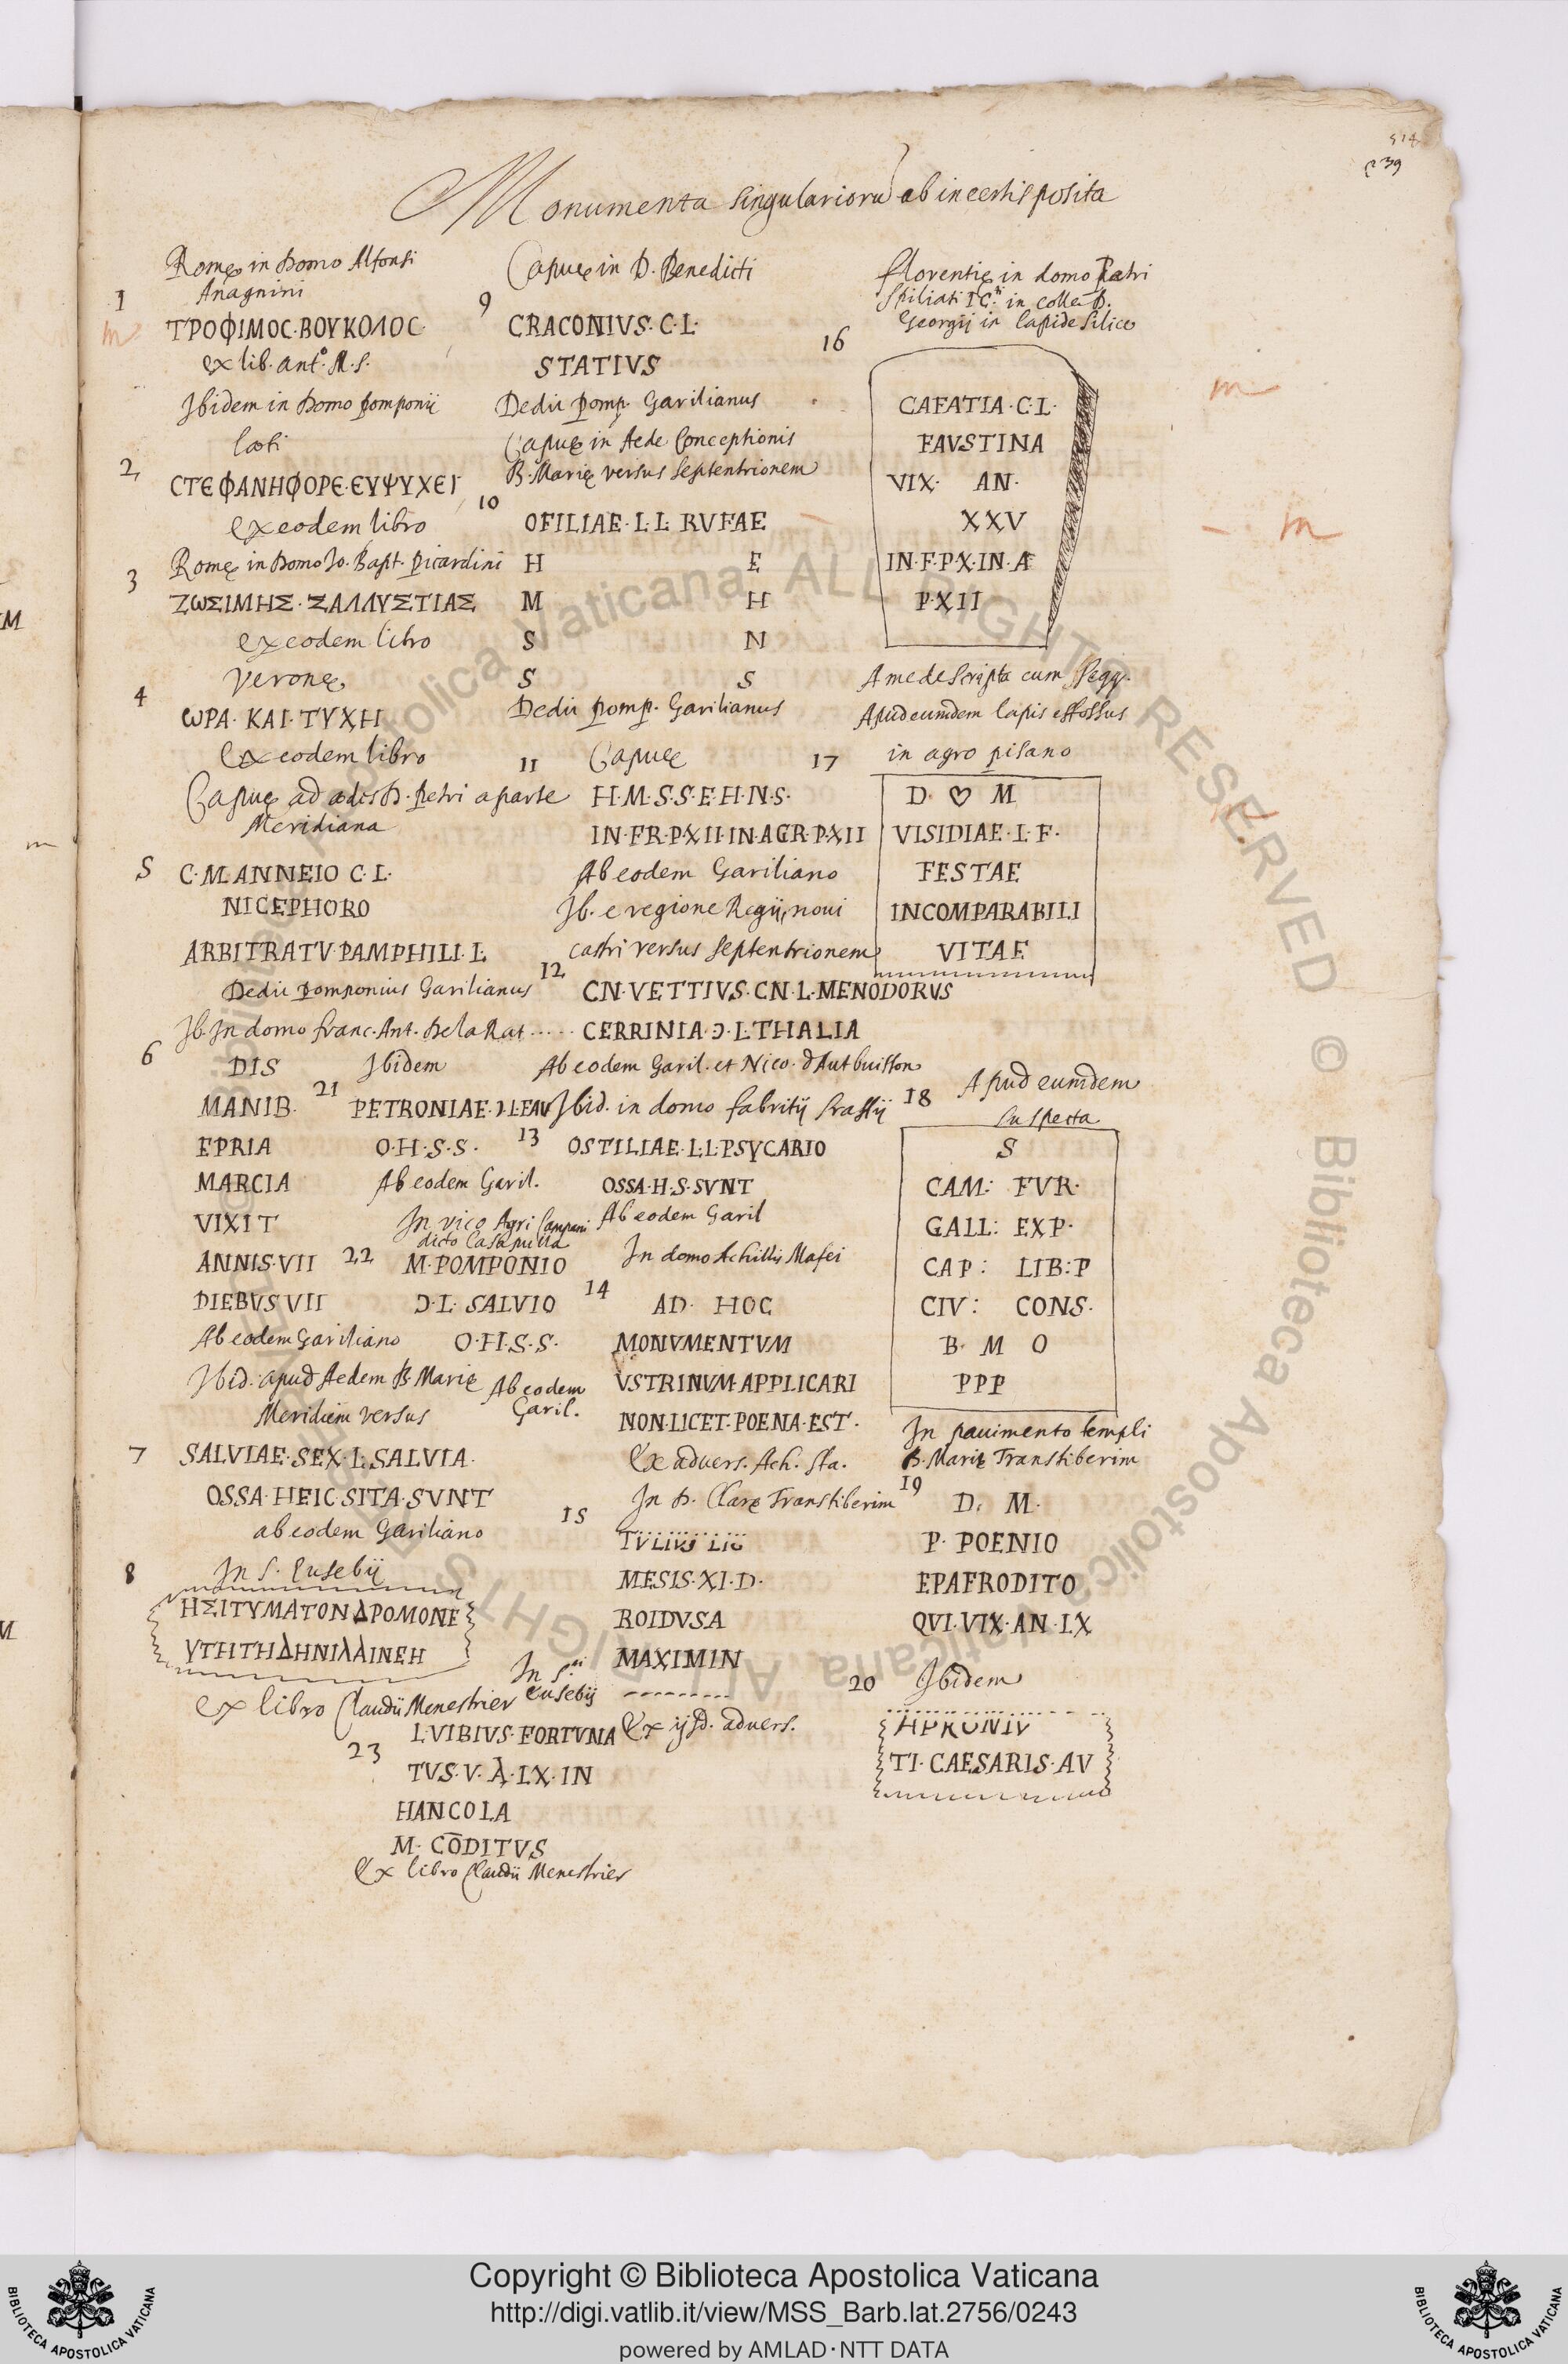 514
239
Monumenta singularioru ab incertis posita
Romę in domo Alfonsi
Anagnini
1
ΤΡΟΦΙΜΟC·ΒΟΥΚΟΛΟC·
ex lib. anto. M.s.
Ibidem in domo Pomponii
Lœti
2
CΤЄΦΑΝΗΦΟΡЄ·ЄΥΨΥΧЄΙ
ex eodem libro
Romę in domo Io. Bapt. Picardini
3
ΖωΣΙΜΗΣ·ΣΑΛΛΥΣΤΙΑΣ
ex eodem libro
Veronę
4
ωΡΑ·ΚΑΙ·ΤΥΧΗ
Ex eodem libro
Capuę ad ædes D. Petri a parte
Meridiana
5
C·MANNEIO C·L·
NICEPHORO
ARBITRATV·PAMPHILI·L·
Dedit Pomponius Garilianus
Ib. In domo franc. Ant. de la Rat .....
6
DIS
MANIB·
EPRIA
MARCIA
VIXIT
ANNIS·VII
DIEBVS VII
Ab eodem Gariliano
Ibid. apud Aedem B. Marię
Meridiem versus
7
SALVIAE·SEX·L·SALVIA·
OSSA·HEIC·SITA·SVNT
ab eodem Gariliano
8
In S. Eusebij
ΗΣΙΤΥΜΑΤΟΝΔΡΟΜΟΝΕ
ΥΤΗΤΗΔΗΝΙΛΛΙΝΕΗ
ex libro Claudii Menestrier
Ibidem
21
PETRONIAE·Ɔ·L·FAV
O·H·S·S·
Ab eodem Garil.
In vico Agri Campani
dicto Casapulla
22
M·POMPONIO
Ɔ·L· SALVIO
O·H·S·S·
Ab eodem
Garil.
In S.ti
Eusebij
23
L·VIBIVS·FORTVNA
TVS·V·A·LX·IN
HANCOLA
M· CŌDITVS
Ex libro Claudii Menestrier
Capuę in D. Benedicti
9
CRACONIVS·C·L·
STATIVS
Dedit Pomp. Garilianus
Capuę in Aede Conceptionis
B. Marię versus septentrionem
10
OFILIAE·L·L RVFAE
H E
M H
S N
S S
Dedit Pomp. Garilianus
11
Capuę
H·M·S·S·E·H·N·S·
IN·FR·P·XII·IN·AGR·P·XII
Ab eodem Gariliano
Ib. e regione Regij, noui
castri versus septentrionem
12
CN·VETTIVS·CN·L·MENODORVS
CERRINIA·Ɔ·L·THALIA
Ab eodem Garil. et Nico. d'Autbuisson
Ibid. in domo fabritij
13
OSTILIAE·L·L·PSYCARIO
OSSA·H·S·SVNT
Ab eodem Garil
In domo Achillis Mafei
14
AD· HOC
MONVMENTVM
VSTRINVM·APPLICARI
NON·LICET·POENA·EST·
Ex advers. Ach. Sta.
In D. Clarę Transtiberim
15
MESIS·XI·D·
ROIDVSA
MAXIMIN
---------
Ex ijsd. advers.
florentię in domo Petri
in colle D.
Georgij in lapide silice
16
CAFATIA·C·L·
FAVSTINA
VIX· AN·
XXV
IN·F·P·X·IN·Æ
P·XII
A me descripta cum seqq.
Apud eumdem lapis effossus
in agro pisano
17
D· ♡ M
VISIDIAE·L·F·
FESTAE
INCOMPARABILI
VITAE
18
Apud eumdem
suspecta
S
CAM: FVR·
GALL: EXP·
CAP: LIB:P
CIV: CONS·
B· M O
PPP
In pauimento templi
B. Marię Transtiberim
19
D· M·
P· POENIO
EPAFRODITO
QVI·VIX·AN·LX
20
Ibidem
APRONIV
TI·CAESARIS·AV
Copyright © Biblioteca Apostolica Vaticana
http://digi.vatlib.it/view/MSS_Barb.lat.2756/0243
powered by AMLAD·NTT DATA